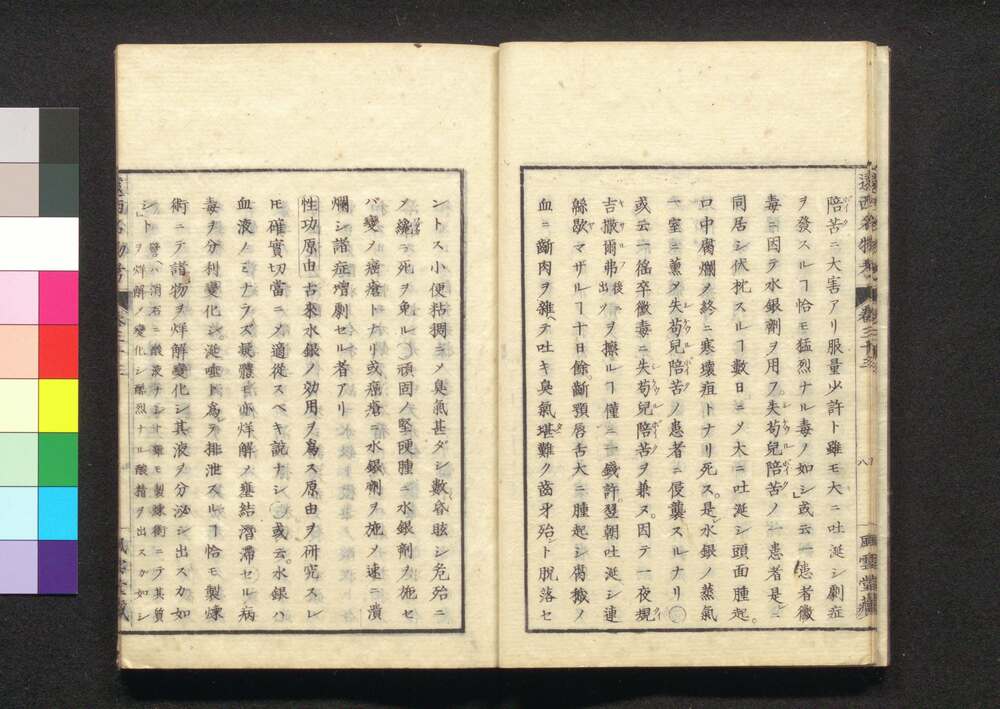 陪苦ニ大害アリ服量少許ト雖モ大ニ吐涎シ劇症
ヲ發スルヿ恰モ猛烈ナル毒ノ如シ」或云一患者黴
毒ニ因テ水銀劑ヲ用フ失苟兒陪苦ノ一患者是ニ
同居シ伏枕スルヿ數日ニメ大ニ吐涎シ頭面腫起。
口中腐爛メ終ニ寒壊疽トナリ死ス。是レ水銀ノ蒸氣
一室ニ薫メ失苟兒陪苦ノ患者ニ侵襲スルナリ〇
或云一徭卒黴毒ニ失苟兒陪苦ヲ兼ス。因テ一夜規
吉撒爾弗後ニ出ツヲ擦ルヿ僅ニ一錢許。翌朝吐涎シ連
緜歇マザルヿ十日餘。齗顎唇舌大ニ腫起シ腐敗メ
血ニ齗肉ヲ雜ヘテ吐キ臭氣堪難ク齒牙殆ント脱落セ
ントス小便粘稠ニメ臭氣甚ダシ數〻昏眩シ危殆ニメ
纔ニ死ヲ免ル〇頑固ノ堅硬腫ニ水銀劑ノ施セ
バ變メ癌瘡トナリ或癌瘡ニ水銀劑ヲ施メ速ニ潰
爛シ諸症増劇セル者アリ
性功原由古來水銀ノ効用ヲ爲ス原由ヲ研究スレ
モ確實切當ニメ適從スベキ説ナシ〇或云。水銀ハ
血液ノミナラズ凝體モ亦烊解メ壅結濳滯セル病
毒ヲ分利變化シ。涎唾ト爲テ排泄スルヿ恰モ製煉
術ニテ諸物ヲ烊解變化シ其液ヲ分泌シ出スカ如
シ」譬ハ消石ニ酸液ナシト雖モ製煉術ニテ其質ヲ烊解メ變化シ爆烈ナル酸精ヲ出スカ如シ
八